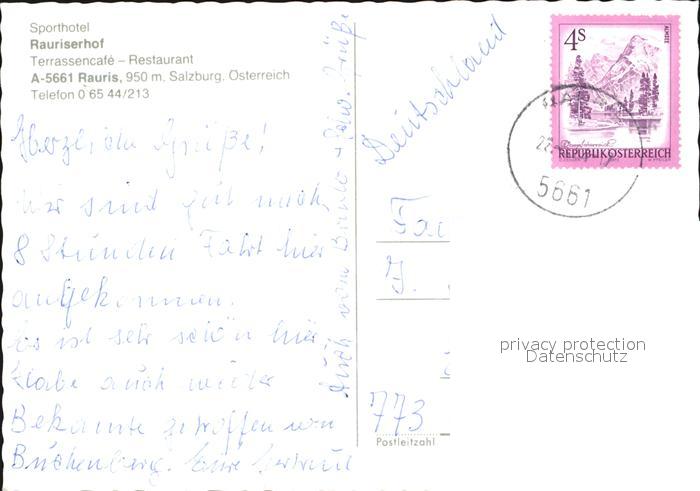 Sporthotel
Rauriserhof
Terrassencafé – Restaurant
A-5661 Rauris, 950 m. Salzburg, Österreich
Telefon 0 65 44/213
Herzliche Grüße!
Wir sind gut nach
8 Stunden Fahrt hier
angekommen.
Es ist sehr schön hier,
Habe auch wieder
Bekannte getroffen von
Büchenberg. Eure Gertrud
Auch von Grüße
Deutschland
Fa
J.
773
Postleitzahl
4S
ALMSEE
REPUBLIK ÖSTERREICH
22.
5661
privacy protection
Datenschutz